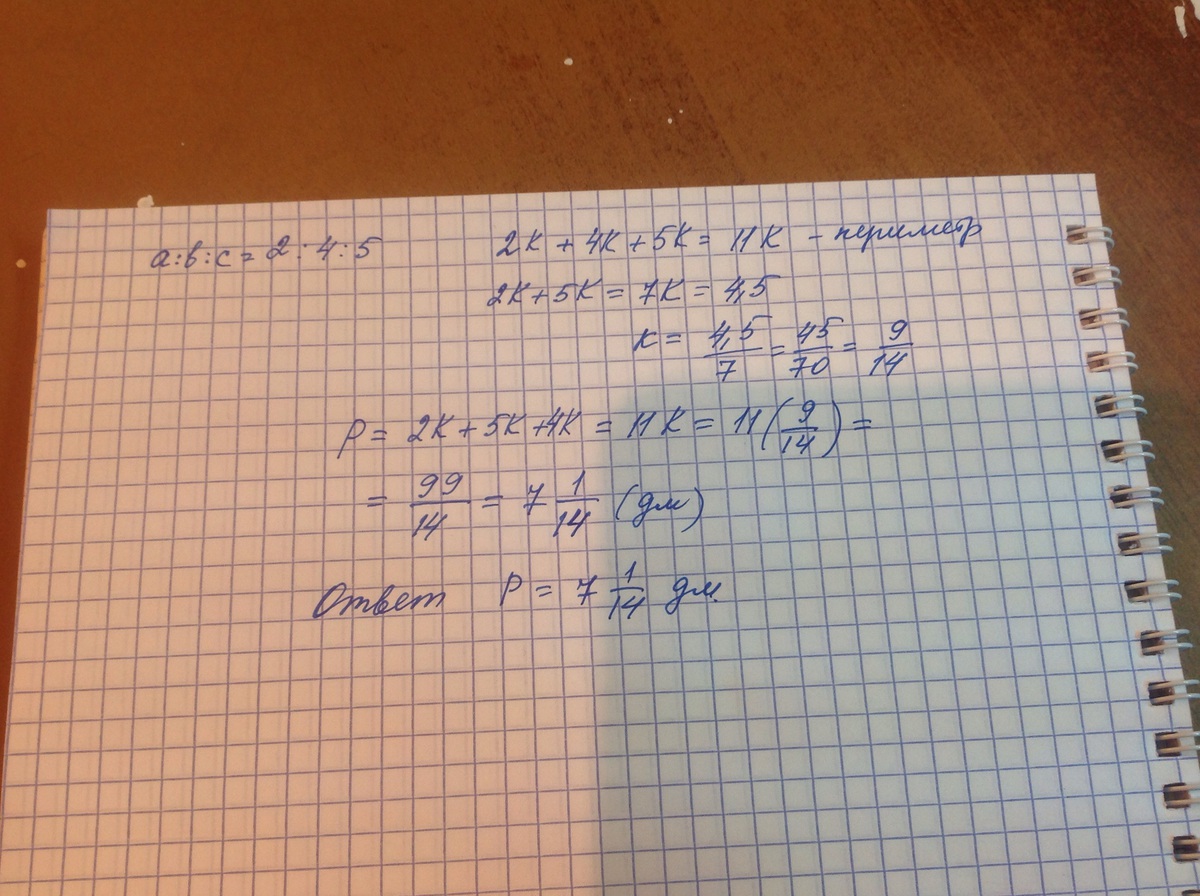 a:в:c = 2:4:5
2к + 4к + 5к = 11к - периметр
2к + 5к = 7к = 4,5
к = 4,5/7 = 45/70 = 9/14
P = 2к + 5к + 4к = 11к = 11(9/14) =
= 99/14 = 7 1/14 (дм)
Ответ P = 7 1/14 дм.